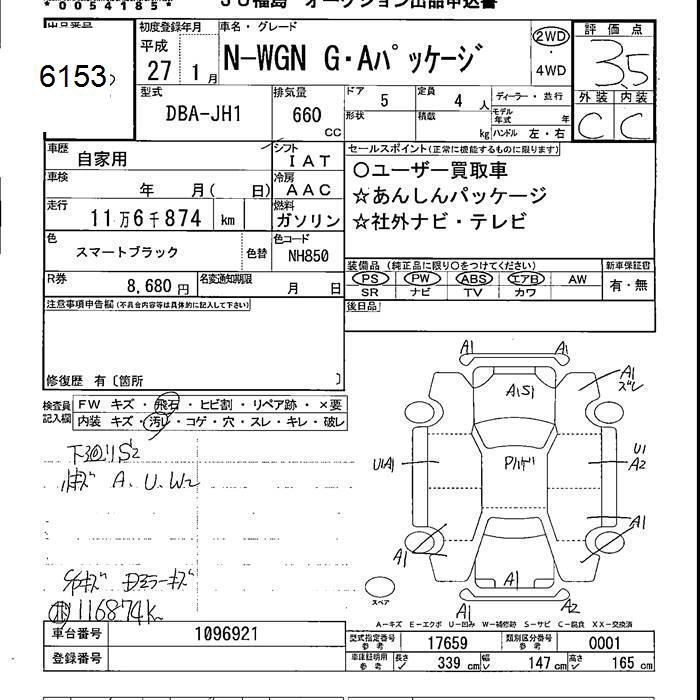 *0054185*
JU福島 オークション出品申込書
出品番号
6153
初度登録年月
平成
27 1月
車名・グレード
N-WGN G・Aパッケージ
2WD
・
4WD
評価点
3.5
外装 内装
C C
型式
DBA-JH1
排気量
660
cc
ドア 5
定員 4 人
ディーラー・並行
形状
積載 kg
モデル年式 年
ハンドル 左・右
車歴
自家用
シフト
IAT
車検
年 月( 日)
冷房
AAC
走行
11万6千874 km
燃料
ガソリン
色
スマートブラック
色替
色コード
NH850
R券
8,680円
名変通知期限
月 日
セールスポイント(正常に機能するものに限ります)
○ユーザー買取車
☆あんしんパッケージ
☆社外ナビ・テレビ
装備品 (純正品に限り○をつけてください)
PS PW ABS エアB AW
SR ナビ TV カワ
新車保証書
有・無
注意事項申告欄(不具合内容等は具体的に記入して下さい)
後日品
修復歴 有〔箇所 〕
検査員
記入欄
FW キズ・飛石・ヒビ割・リペア跡・×要
内装 キズ・汚レ・コゲ・穴・スレ・キレ・破レ
下回りS2
小キズ A、U、W2
Dミラーキズ
116874K
A1 A1
A1
ズレ
A1S1
U1A1
U1
A2
A1
A1
A1
A1
A2
スペア
A-キズ E-エクボ U-凹み W-補修跡 S-サビ C-腐食 XX-交換済
車台番号
1096921
登録番号
型式指定番号
参考
17659
類別区分番号
参考
0001
車庫証明用
参考
長さ 339 cm
幅 147 cm
高さ 165 cm